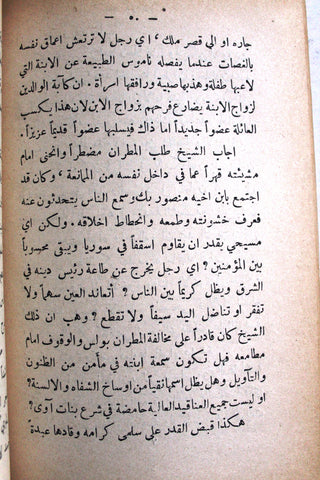 - ٥٠ -
جاره او الى قصر ملك، اي رجل لا ترتعش اعماق نفسه
بالغصات عندما يفصله ناموس الطبيعة عن الابنة التي
لاعبها طفلة وهذبها صبية ورافقها امرأة. ان كآبة الوالدين
لزواج الابنة يضارع فرحهم بزواج الابن لان هذا يكسب
العائلة عضواً جديداً اما ذاك فيسلبها عضواً قديماً عزيزاً.
اجاب الشيخ طلب المطران مضطراً وانحنى امام
مشيئته قهراً عما في داخل نفسه من الممانعة، وكان قد
اجتمع بابن اخيه منصور بك وسمع الناس يتحدثون عنه
فعرف خشونته وطمعه وانحطاط اخلاقه. ولكن اي
مسيحي يقدر ان يقاوم اسقفاً في سوريا ويبقى محسوباً
بين المؤمنين؟ اي رجل يخرج عن طاعة رئيس دينه في
الشرق ويظل كريماً بين الناس؟ أتعاند العين سهماً ولا
تفقر او تناضل اليد سيفاً ولا تقطع؟ وهب ان ذلك
الشيخ كان قادراً على مخالفة المطران بولس والوقوف امام
مطامعه فهل تكون سمعة ابنته في مأمن من الظنون
والتآويل وهل يظل اسمها نقياً من اوساخ الشفاه والالسنة؟
او ليست جميع العناقيد العالية حامضة في شرع بنات آوى؟
هكذا قبض القدر على سلمى كرامه وقادها عبدة